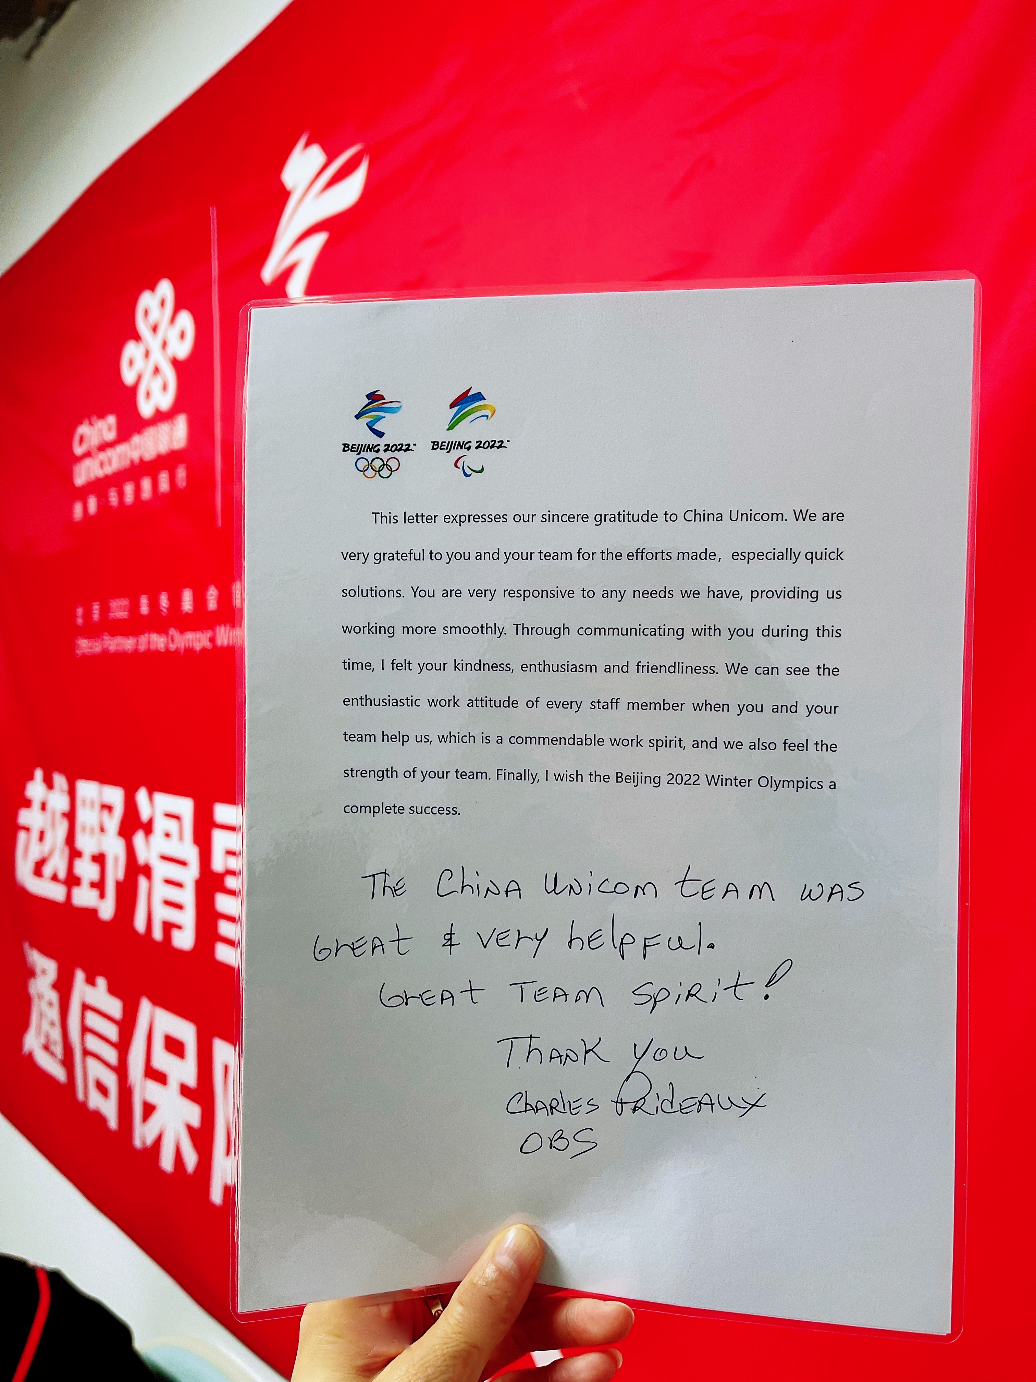 China
unicom中国联通
北京2022年冬奥会
Official Partner of the Olympic Win
越野滑雪
通信保障
BEIJING 2022™ BEIJING 2022™
This letter expresses our sincere gratitude to China Unicom. We are
very grateful to you and your team for the efforts made, especially quick
solutions. You are very responsive to any needs we have, providing us
working more smoothly. Through communicating with you during this
time, I felt your kindness, enthusiasm and friendliness. We can see the
enthusiastic work attitude of every staff member when you and your
team help us, which is a commendable work spirit, and we also feel the
strength of your team. Finally, I wish the Beijing 2022 Winter Olympics a
complete success.
The China Unicom team was
Great & very helpful.
Great Team Spirit!
Thank you
Charles Prideaux
OBS